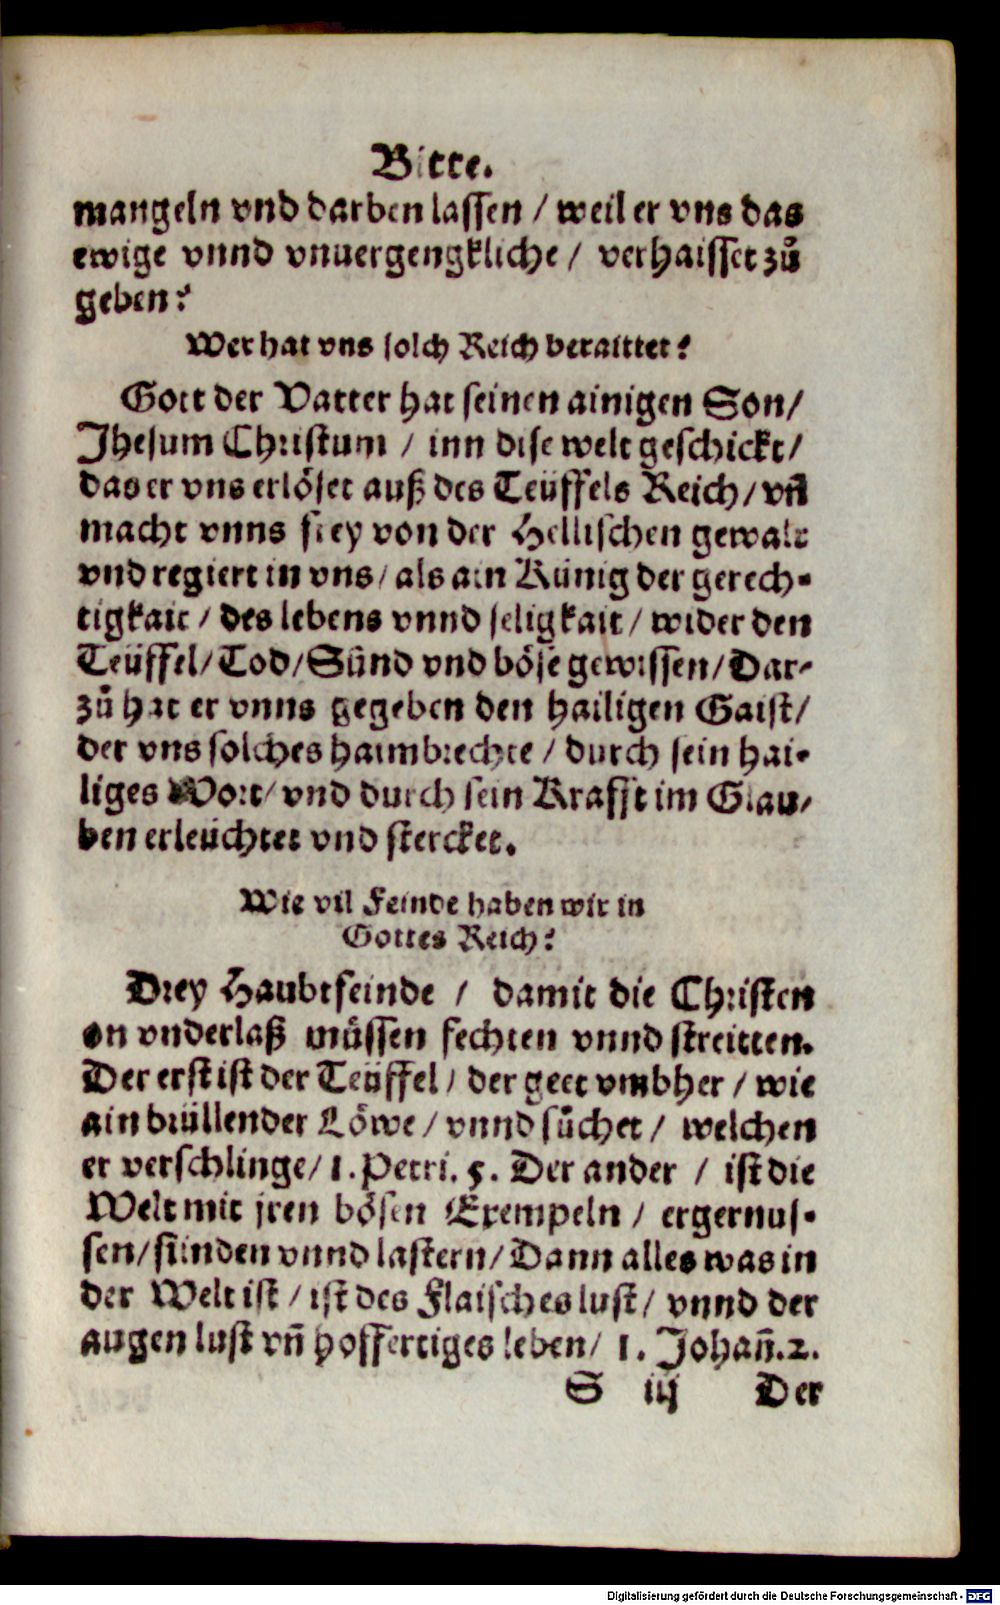 Bitte.
mangeln vnd darben lassen / weil er vns das
ewige vnnd vnuergengkliche / verhaisset zů
geben?
Wer hat vns solch Reich beraittet?
Gott der Vatter hat seinen ainigen Son /
Jhesum Christum / inn dise welt geschickt /
das er vns erlöset auß des Teüffels Reich / vn̄
macht vnns frey von der Hellischen gewalt
vnd regiert in vns / als ain Künig der gerech-
tigkait / des lebens vnnd seligkait / wider den
Teüffel / Tod / Sünd vnd böse gewissen / Dar-
zů hat er vnns gegeben den hailigen Gaist /
der vns solches haimbrechte / durch sein hai-
liges Wort / vnd durch sein Krafft im Glau-
ben erleüchtet vnd stercket.
Wie vil Feinde haben wir in
Gottes Reich?
Drey Haubtfeinde / damit die Christen
on vnderlaß müssen fechten vnnd streitten.
Der erst ist der Teüffel / der geet vmbher / wie
ain brüllender Löwe / vnnd sůchet / welchen
er verschlinge / 1. Petri. 5. Der ander / ist die
Welt mit jren bösen Exempeln / ergernus-
sen / sünden vnnd lastern / Dann alles was in
der Welt ist / ist des Flaisches lust / vnnd der
augen lust vn̄ hoffertiges leben / 1. Johan̄. 2.
S iij Der
Digitalisierung gefördert durch die Deutsche Forschungsgemeinschaft - DFG